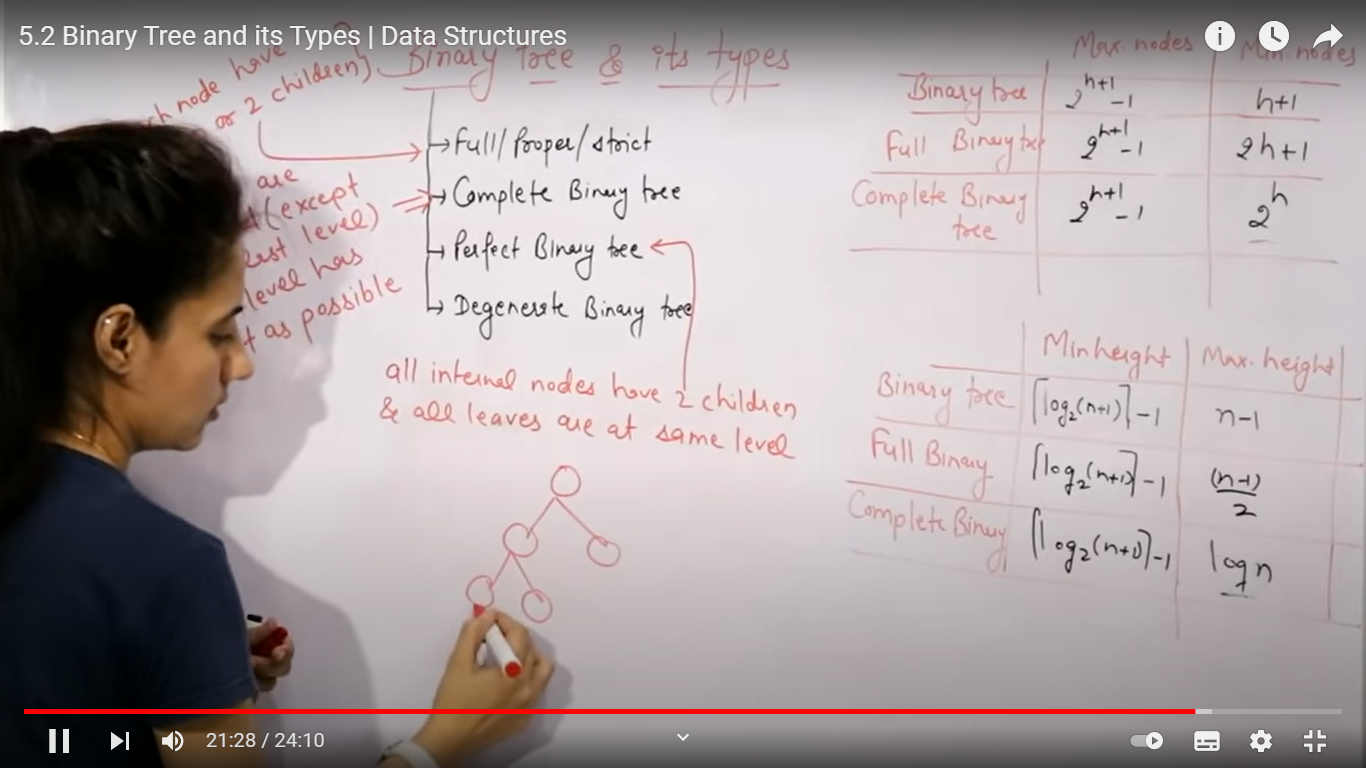 5.2 Binary Tree and its Types | Data Structures
Binary tree & its types
node have
or 2 children)
→ Full/Proper/strict
→ Complete Binary tree
→ Perfect Binary tree
→ Degenerate Binary tree
are
(except
level)
level has
as possible
all internal nodes have 2 children
& all leaves are at same level
Max. nodes Min. nodes
Binary tree 2^(h+1) -1 h+1
Full Binary tree 2^(h+1) -1 2h+1
Complete Binary tree 2^(h+1) -1 2^h
Min height Max. height
Binary tree ⌈log₂(n+1)⌉-1 n-1
Full Binary ⌈log₂(n+1)⌉-1 (n-1)/2
Complete Binary ⌈log₂(n+1)⌉-1 log n
21:28 / 24:10